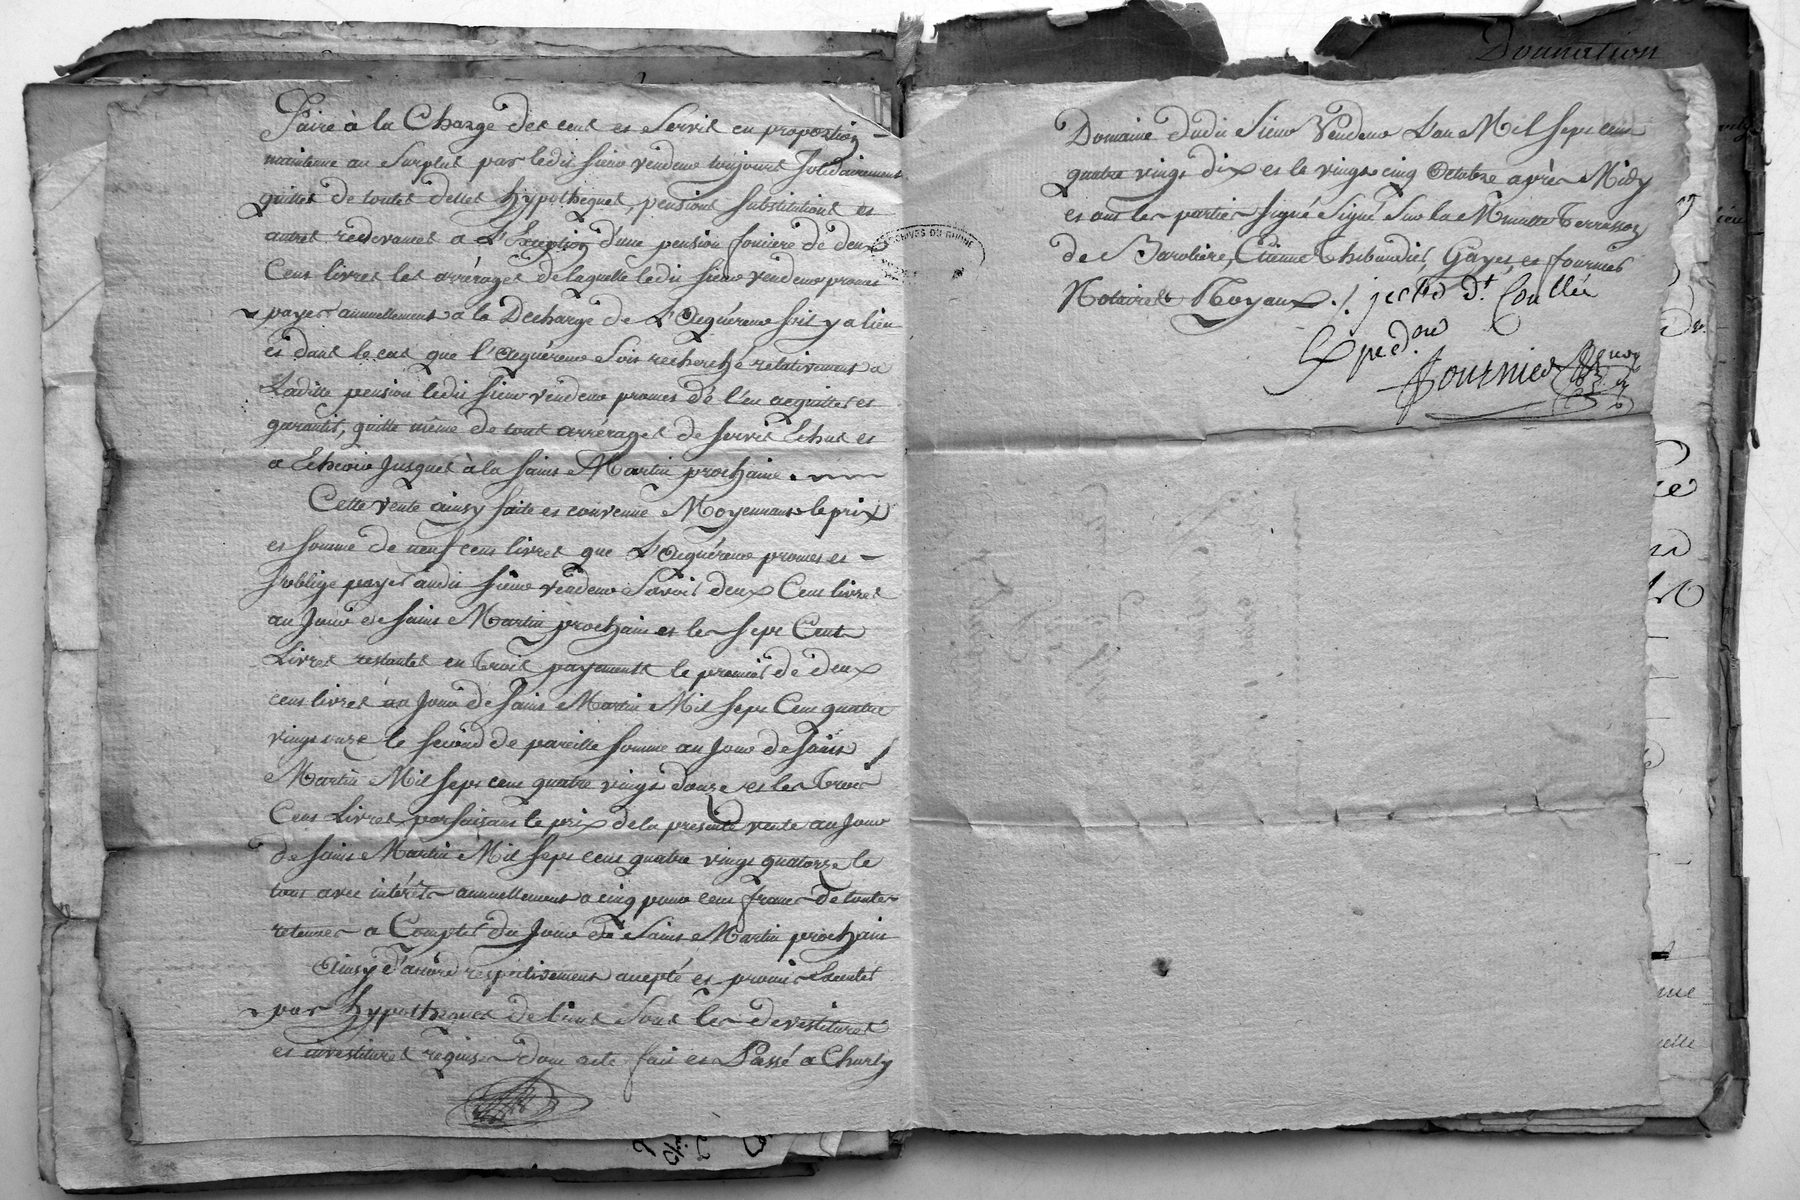 Faire à la Charge des cens et Servis en proportion
maintenue au Surplus par ledit Sieur vendeur toujours Solidairement
quittes de toutes dettes hypotheques, pensions substitutions et
autres redevances a L'Exception d'une pension fonciere de deux
Cens livres les arrérages de laquelle ledit Sieur vendeur promet
payer annuellement a la Décharge de L'Acquéreur s'il y a lieu
et dans le cas que l'Acquéreur Soit recherché relativement a
Ladite pension ledit Sieur vendeur promet de l'en acquitter et
garantir, quitte même de tous arrérages de servis Echus et
a Echeoir Jusques à la Saint Martin prochaine.
Cette vente ainsy faite et convenue Moyennant le prix
et somme de neuf cens livres que L'Acquéreur promet et
s'oblige payer audit Sieur vendeur Savoir deux Cens livres
au Jour de Saint Martin prochain et les sept Cents
Livres restantes en trois payements le premier de deux
cens livres au Jour de Saint Martin Mil Sept Cens quatre
vingt onze le second de pareille somme au Jour de Saint
Martin Mil sept cens quatre vingt douze et les trois
Cens Livres parfaisant le prix de la présente vente au Jour
de Saint Martin Mil sept cens quatre vingt quatorze le
tout avec intérêts annuellement a cinq pour cens francs de toutes
retenues a Compter du Jour de Saint Martin prochain
Ainsy d'accord respectivement accepté et promis
par hypotheques de biens Sous les devestitures
et investitures requises dont acte fait et Passé a Charly
ARCHIVES DU RHONE
Domaine dudit Sieur Vendeur L'an Mil sept cens
quatre vingt dix et le vingt cinq Octobre après Midy
et ont les parties signé Signé Sur la Minutte Terrasson
de Barolière, Etienne Thibaudier, Gayet, et fournier
Notaires Royaux ./.
Expedon
Fournier
Donnation